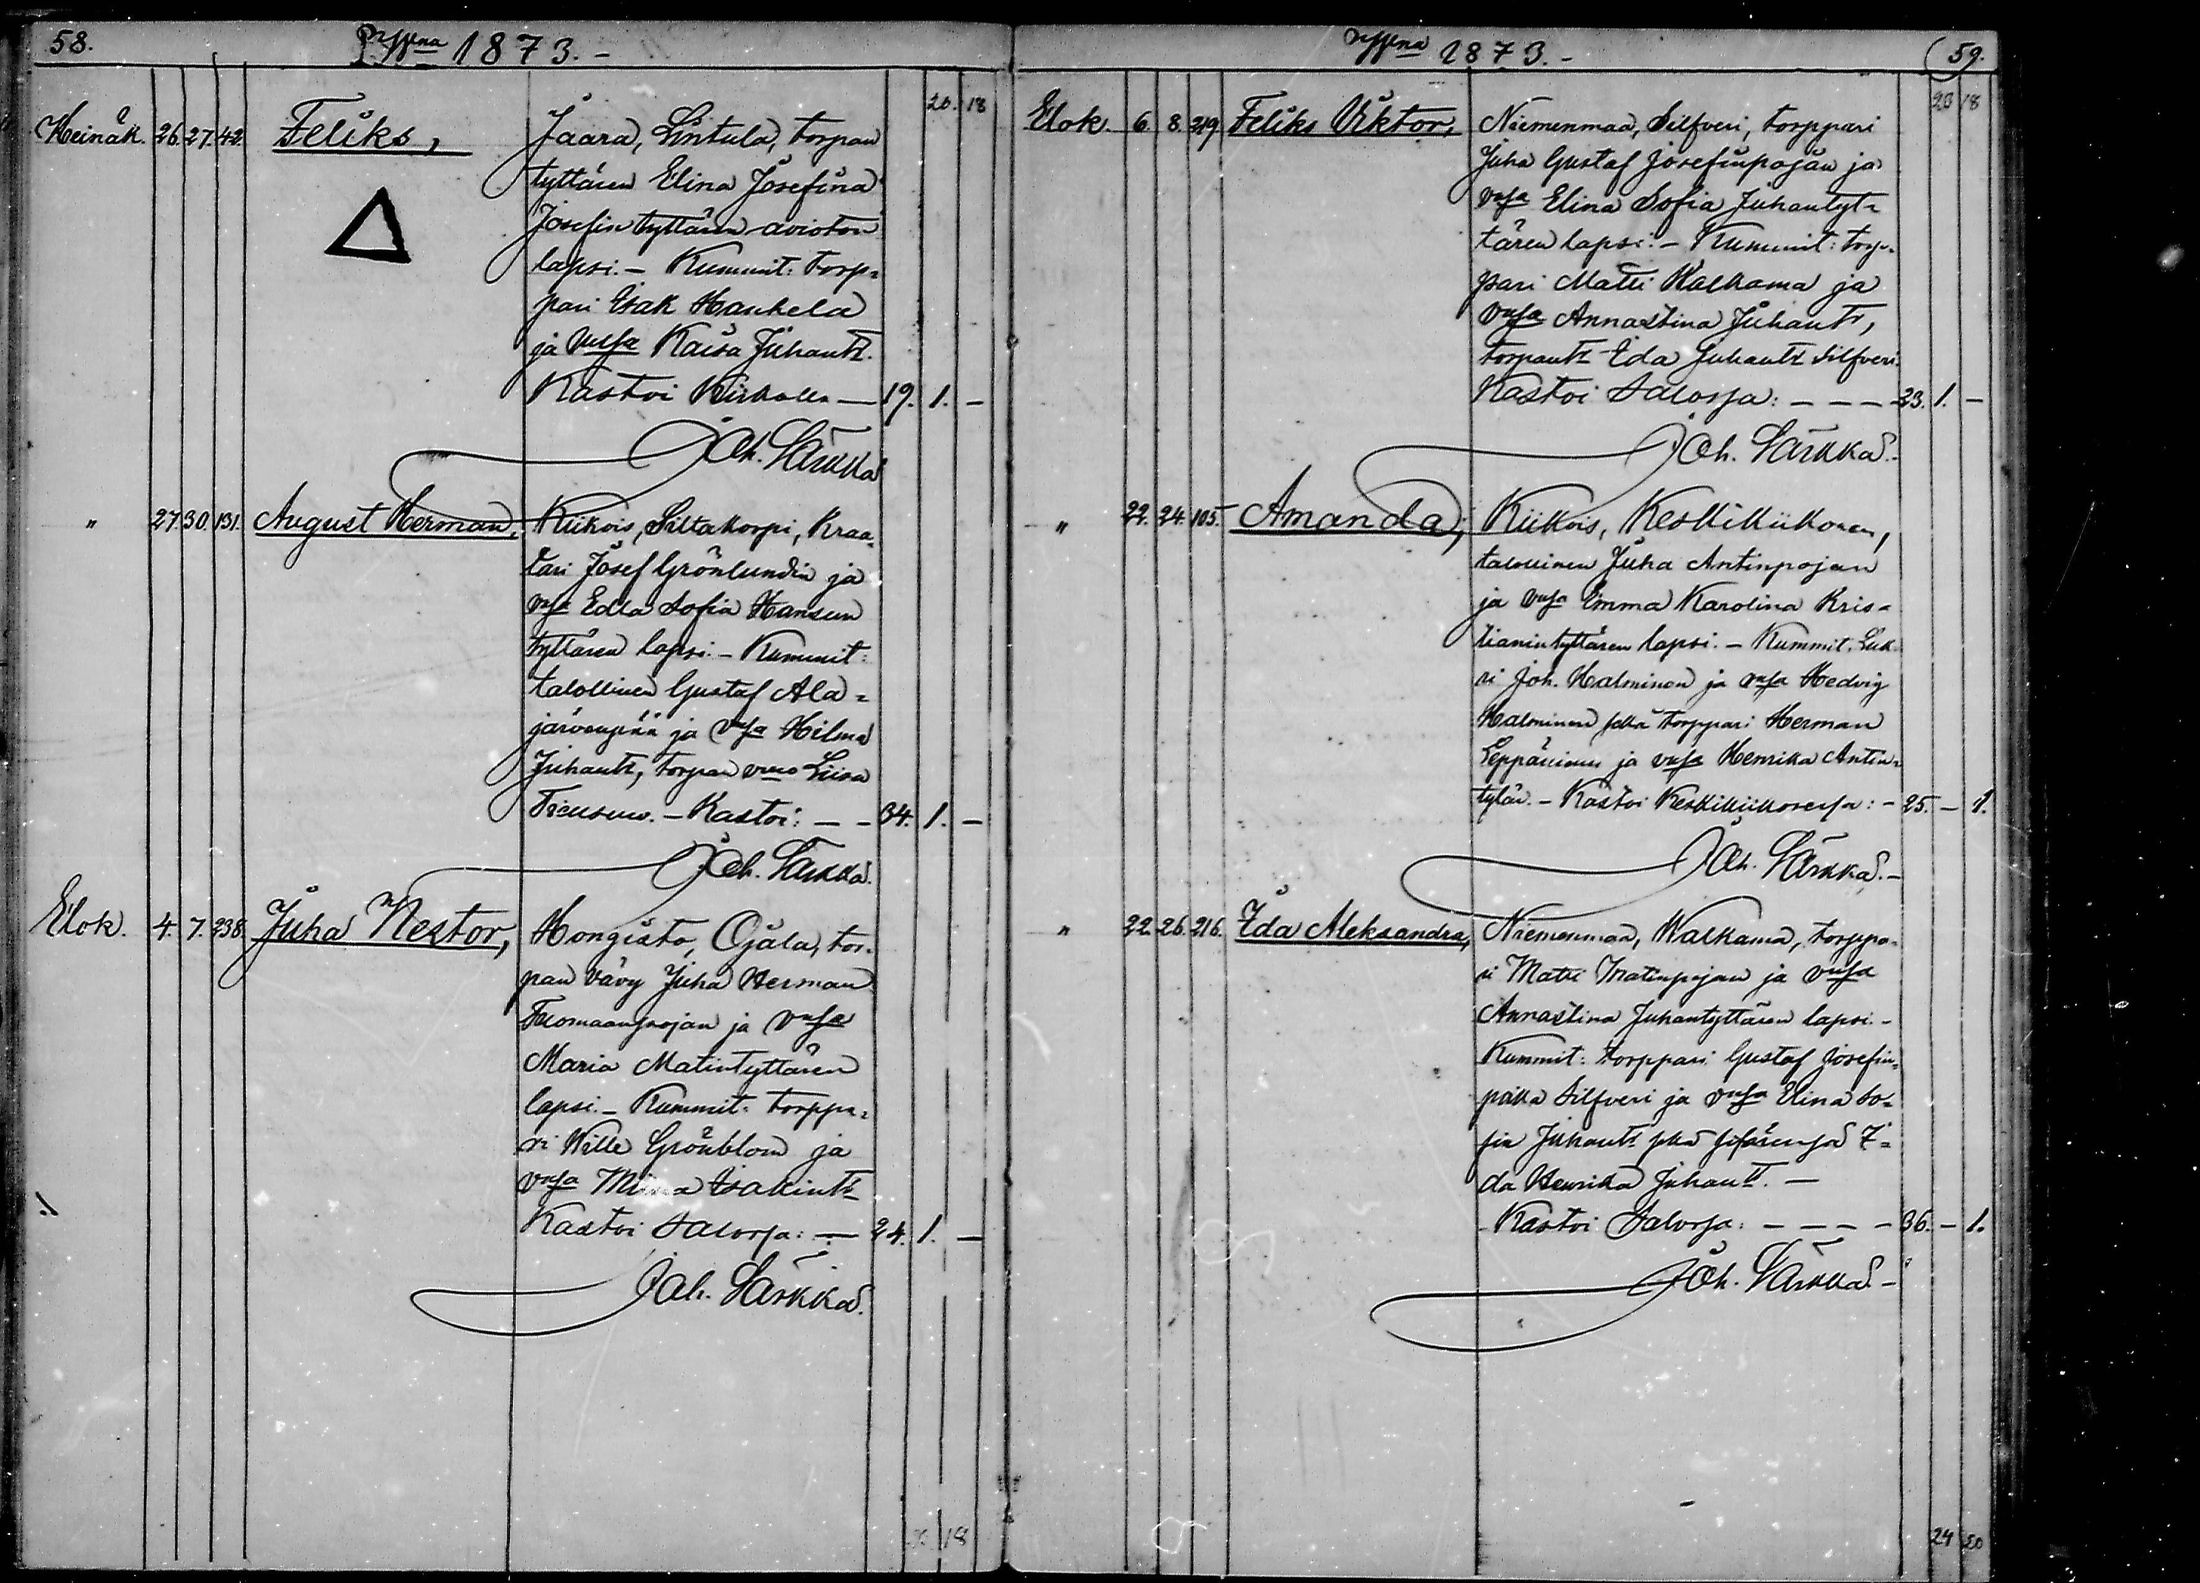 58.
1873.-
20. 18
Heinäk. 26. 27. 42. Feliks,
Jaara, Lintula, torpan
tyttären Elina Josefina
Josefintyttären avioton
lapsi. - Kummit: torp=
pari Isak Haukela
ja vmsa Kaisa Juhantr.
Kastoi Kirkolla — 19. 1. -
Joh. Särkkä
" 27. 30. 131. August Herman,
Kiikois, Siltakorpi, Kraa=
tari Josef Grönlundin ja
vmsa Edla Sofia Hansun
tyttären lapsi. - Kummit:
talollinen Gustaf Ala=
järvenpää ja vmsa Hilma
Juhantr, torpan vmo Liisa
Kastoi: - - 34. 1. -
Joh. Särkkä.
Elok. 4. 7. 238. Juha Nestor,
Hongisto, Ojala, tor-
pan vävy Juha Herman
Tuomaanpojan ja vmsa
Maria Matintyttären
lapsi. - Kummit: torppa=
ri Wille Grönblom ja
vmsa Isakintr
Kastoi Salossa: - 24. 1. -
Joh. Särkkä.
18
1873.-
59.
20 18
Elok. 6. 8. 219. Feliks Viktor,
Niemenmaa, Silfveri, torppari
Juha Gustaf Josefinpojan ja
vmsa Elina Sofia Juhantyt=
tären lapsi. - Kummit: torp=
pari Matti Walkama ja
vmsa Annastina Juhantr,
torpantr Ida Juhantr Silfveri.
Kastoi Salossa: - - - 23. 1. -
Joh. Särkkä.
" 22. 24. 105. Amanda,
Kiikois, Keskikiikonen,
talollinen Juha Antinpojan
ja vmsa Emma Karolina Kris=
tianintyttären lapsi. - Kummit. Luk
ri Joh. Halminen ja vmsa Hedvig
Halminen sekä torppari Herman
Leppäniemi ja vmsa Henrika Antin=
tytär. - Kastoi Keskikiikosessa: - 25. - 1.
Joh. Särkkä.-
" 22. 26. 216. Ida Aleksandra,
Niemenmaa, Walkama, torppa=
ri Matti Matinpojan ja vmsa
Annastina Juhantyttären lapsi. -
Kummit: torppari Gustaf Josefin=
poika Silfveri ja vmsa Elina So=
fia Juhantr sekä sisärensä I=
da Henrika Juhantr. -
Kastoi Salossa: - - - - 36. - 1.
Joh. Särkkä.-
24 20